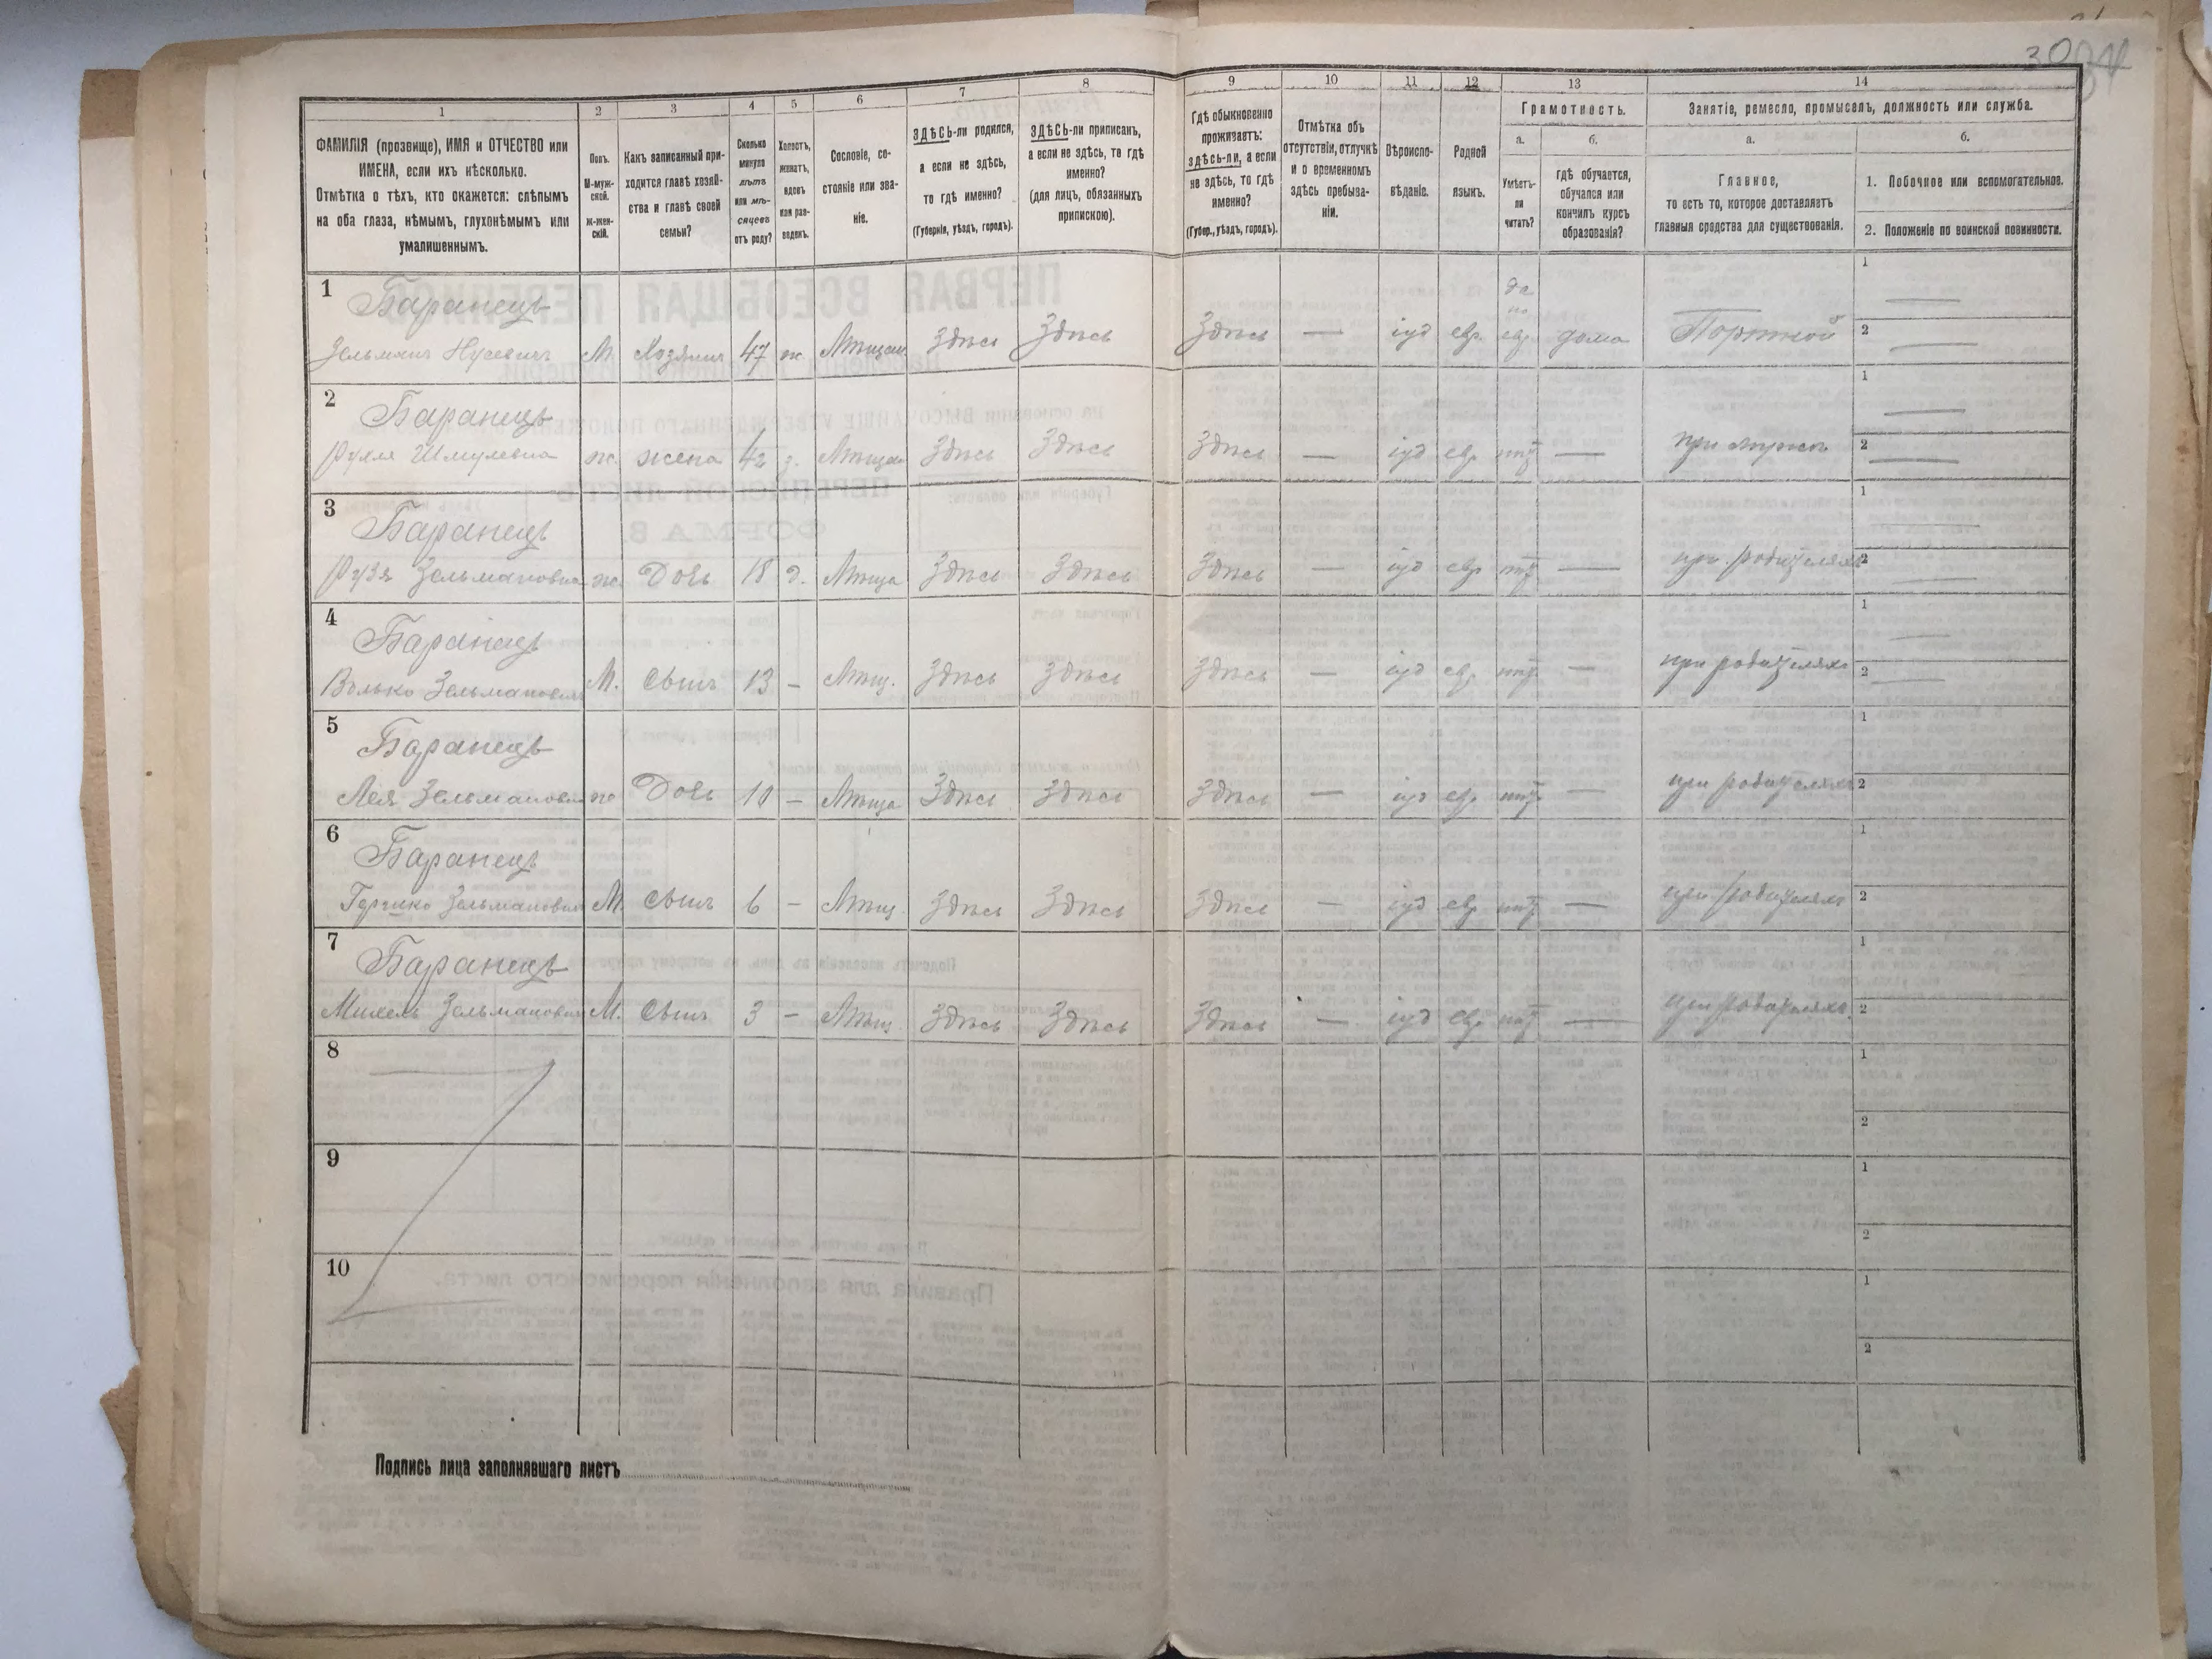 30
1
2
3
4
5
6
7
8
9
10
11
12
13
14
ФАМИЛІЯ (прозвище), ИМЯ и ОТЧЕСТВО или
ИМЕНА, если ихъ нѣсколько.
Отмѣтка о тѣхъ, кто окажется: слѣпымъ
на оба глаза, нѣмымъ, глухонѣмымъ или
умалишеннымъ.
Полъ.
М-муж-
ской.
Ж-жен-
скій.
Какъ записанный при-
ходится главѣ хозяй-
ства и главѣ своей
семьи?
Сколько
минуло
лѣтъ
или мѣ-
сяцевъ
отъ роду?
Холостъ,
женатъ,
вдовъ
или раз-
веденъ.
Сословіе, со-
стояніе или зва-
ніе.
ЗДѢСЬ-ли родился,
а если не здѣсь,
то гдѣ именно?
(Губернія, уѣздъ, городъ).
ЗДѢСЬ-ли приписанъ,
а если не здѣсь, то гдѣ
именно?
(для лицъ, обязанныхъ
припискою).
Гдѣ обыкновенно
проживаетъ:
здѣсь-ли, а если
не здѣсь, то гдѣ
именно?
(Губер., уѣздъ, городъ).
Отмѣтка объ
отсутствіи, отлучкѣ
и о временномъ
здѣсь пребыва-
ніи.
Вѣроиспо-
вѣданіе.
Родной
языкъ.
Грамотность.
а.
Умѣетъ-
ли
читать?
б.
гдѣ обучается,
обучался или
кончилъ курсъ
образованія?
Занятіе, ремесло, промыселъ, должность или служба.
а.
Главное,
то есть то, которое доставляетъ
главныя средства для существованія.
б.
1. Побочное или вспомогательное.
2. Положеніе по воинской повинности.
1 Баранецъ да 1 —
Зельманъ М Хозяинъ 47 ж. Мѣщан. Здѣсь Здѣсь Здѣсь — іуд евр. евр дома Портной 2 —
2 Баранецъ 1 —
Рухля Шмулевна ж. жена 42 з. Мѣщан Здѣсь Здѣсь Здѣсь — іуд евр нѣт — при мужѣ 2 —
3 Баранецъ 1 —
Рузя Зельмановна ж. Дочь 18 д. Мѣща Здѣсь Здѣсь Здѣсь — іуд евр нѣт — при родителяхъ 2 —
4 Баранецъ 1 —
Волько Зельмановичъ М. Сынъ 13 — Мѣщ. Здѣсь Здѣсь Здѣсь — іуд евр нѣт — при родителяхъ 2 —
5 Баранецъ 1
Лея Зельмановна ж Дочь 10 — Мѣща Здѣсь Здѣсь Здѣсь — іуд евр нѣт — при родителяхъ 2
6 Баранецъ 1
Гершко Зельмановичъ М. Сынъ 6 — Мѣщ Здѣсь Здѣсь Здѣсь — іуд евр нѣт — при родителяхъ 2
7 Баранецъ 1
Михель Зельмановичъ М. Сынъ 3 — Мѣщ. Здѣсь Здѣсь Здѣсь — іуд евр нѣт — при родителяхъ 2
8 1
2
9 1
2
10 1
2
Подпись лица заполнявшаго листъ